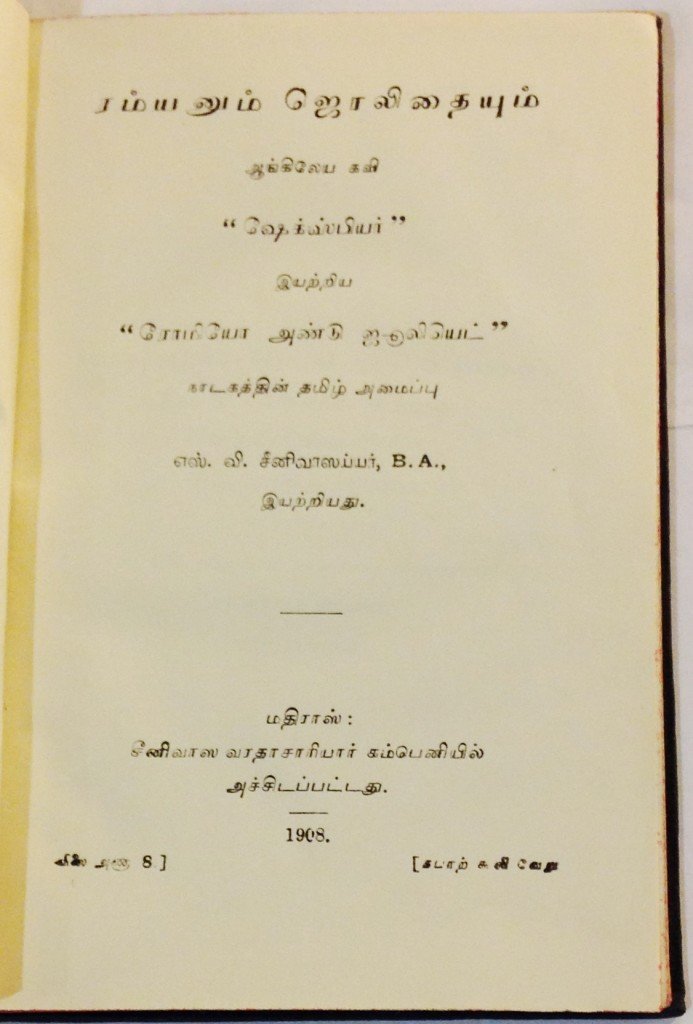 ரம்யனும் ஜொலிதையும்
ஆங்கிலேய கவி
“ஷேக்ஸ்பியர்”
இயற்றிய
“ரோமியோ அண்டு ஜூலியெட்”
நாடகத்தின் தமிழ் அமைப்பு
எஸ். வி. சீனிவாஸய்யர், B. A.,
இயற்றியது.
மதிராஸ் :
சீனிவாஸ வரதாசாரியார் கம்பெனியில்
அச்சிடப்பட்டது.
1908.
விலை அணா 8 ]
[தபாற் கூலி வேறு